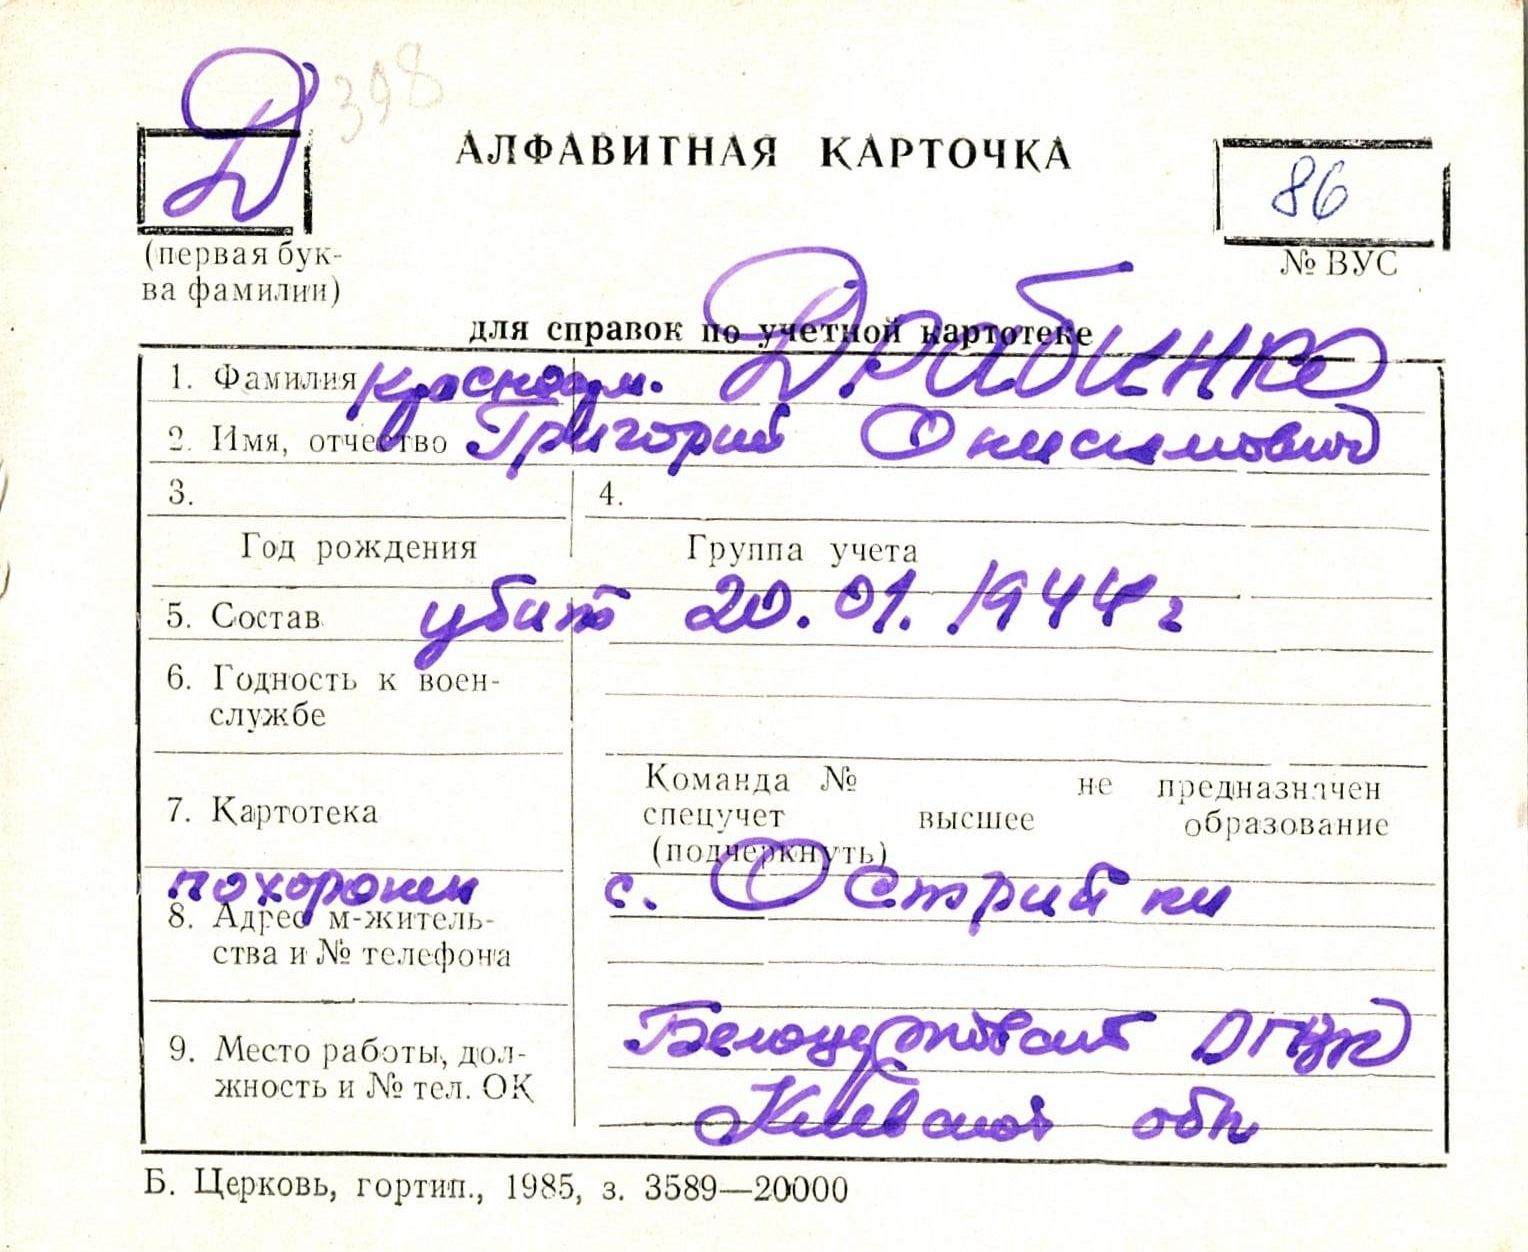 Д 398
АЛФАВИТНАЯ КАРТОЧКА
86
(первая бук-
ва фамилии)
№ ВУС
для справок по учетной картотеке
1. Фамилия красноарм. Драбинко
2. Имя, отчество Григорий Онисимович
3. 4.
Год рождения Группа учета
5. Состав убит 20.01.1944 г
6. Годность к воен-
службе
7. Картотека
Команда № не предназначен
спецучет высшее образование
(подчеркнуть)
похоронен с. Острийки
8. Адрес м-житель-
ства и № телефона
Белоцерковский ОГВК
9. Место работы, дол-
жность и № тел. ОК
Киевской обл
Б. Церковь, гортип., 1985, з. 3589—20000